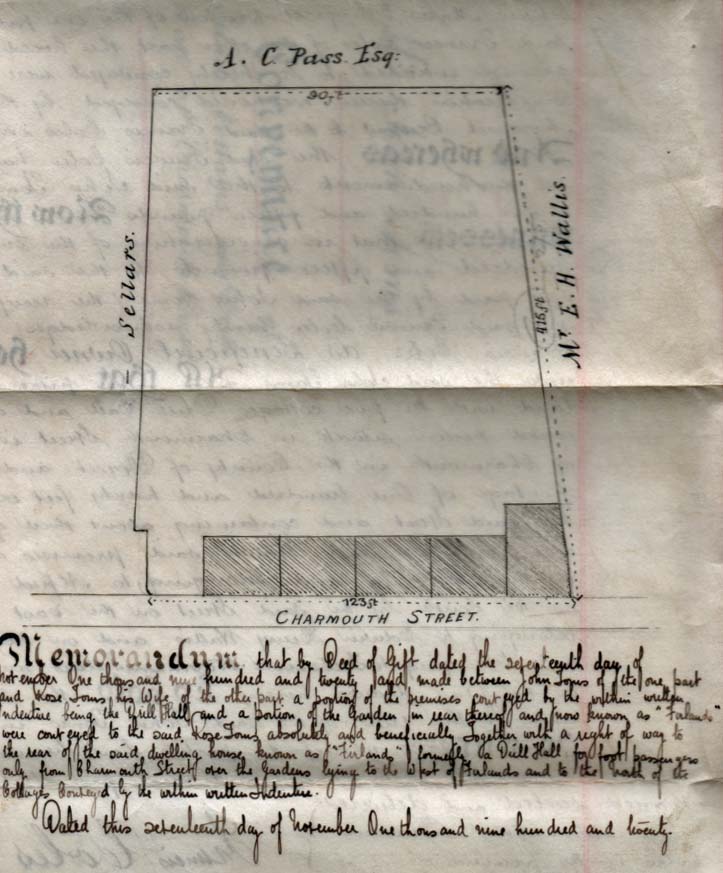 A. C. Pass. Esq:
90 ft
Sellars.
416 ft
Mr E. H. Wallis.
123 ft
CHARMOUTH STREET.
Memorandum that by Deed of Gift dated the seventeenth day of
November One thousand nine hundred and twenty and made between John Toms of the one part
and Rose Toms his Wife of the other part a portion of the premises conveyed by the within written
Indenture being the Drill Hall and a portion of the Garden in rear thereof and now known as "Firlands"
were conveyed to the said Rose Toms absolutely and beneficially together with a right of way to
the rear of the said dwelling house known as "Firlands" formerly a Drill Hall for foot passengers
only from Charmouth Street over the Gardens lying to the West of Firlands and to the north of the
Cottages Conveyed by the within written Indenture.
Dated this seventeenth day of November One thousand nine hundred and twenty.